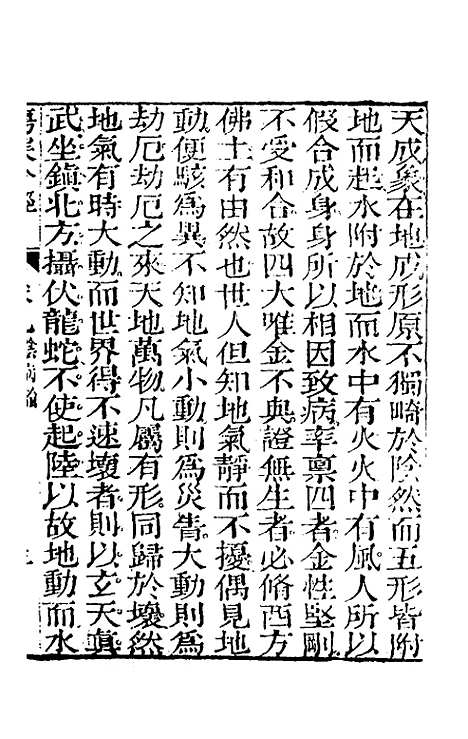 天成象在地成形原不獨畸於陰然而五形皆附
地而起水附於地而水中有火火中有風人所以
假合成身身所以相因致病率禀四者金性堅剛
不受和合故四大唯金不與證無生者必脩西方
佛土有由然也世人但知地氣靜而不擾偶見地
動便駭爲異不知地氣小動則爲災眚大動則爲
劫厄劫厄之來天地萬物凡屬有形同歸於壞然
地氣有時大動而世界得不速壞者則以玄天眞
武坐鎭北方攝伏龍蛇不使起陸以故地動而水